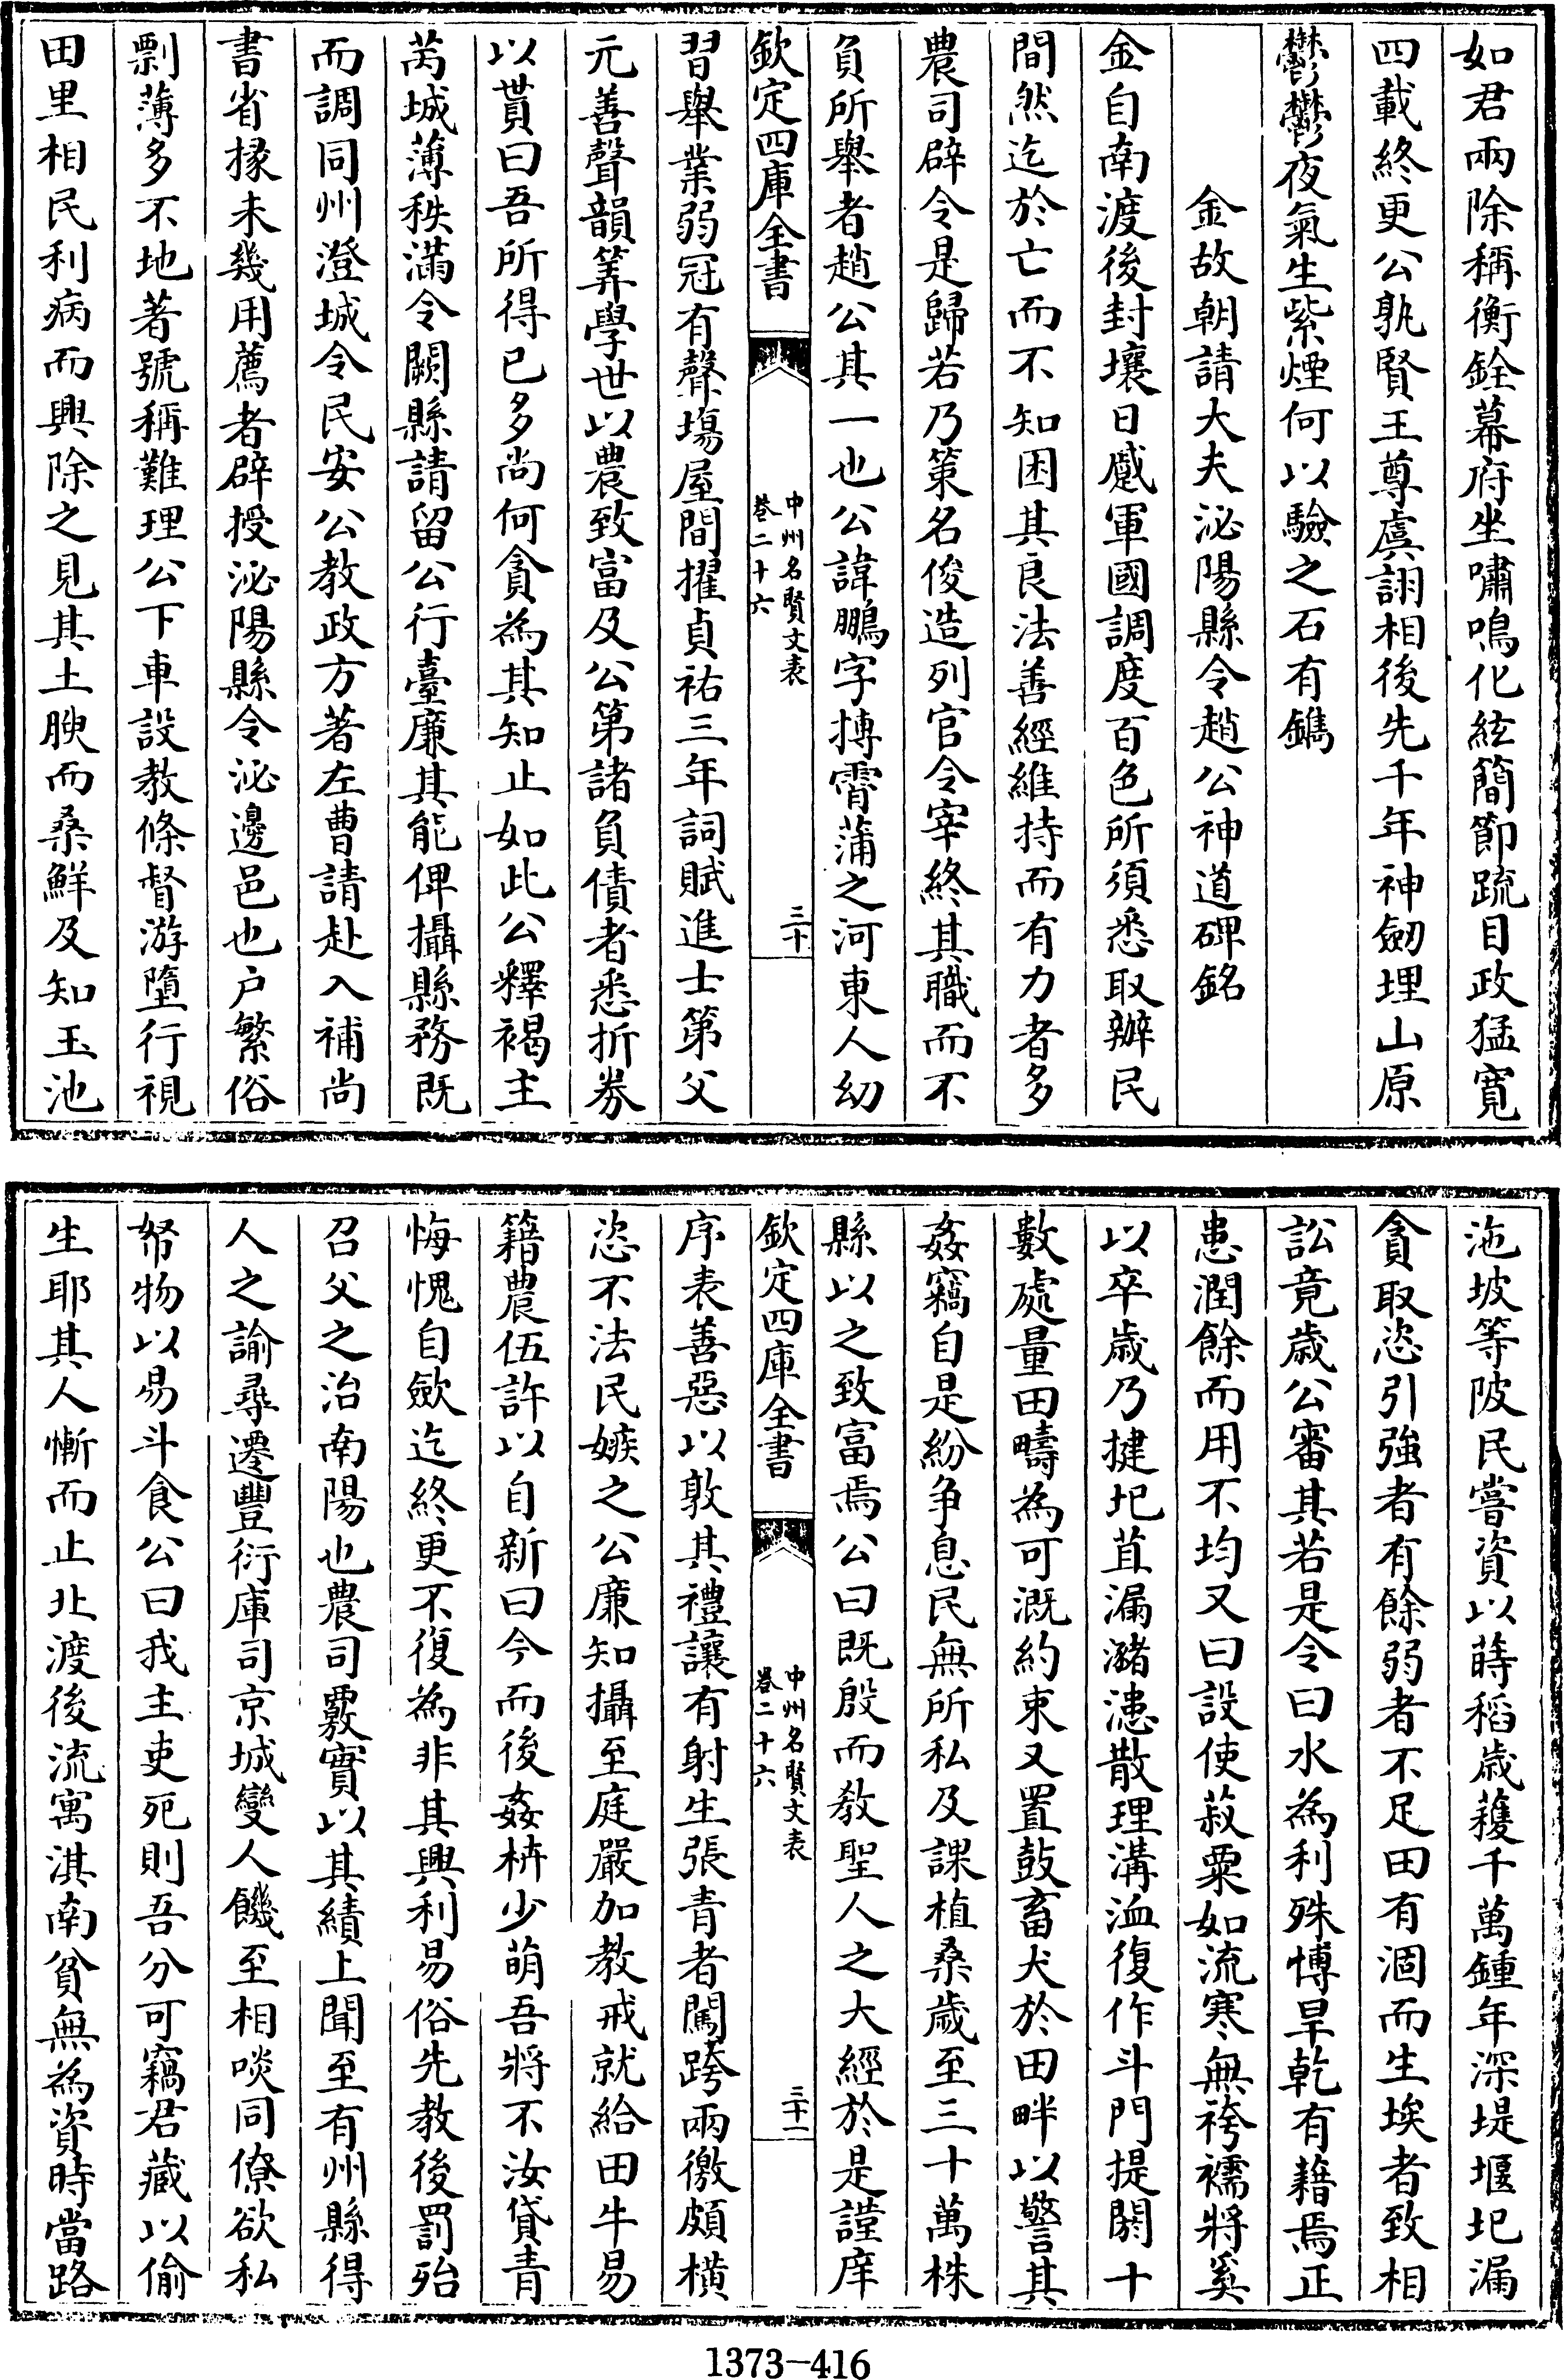 如君兩除稱衡銓幕府坐嘯鳴化絃簡節疏目政猛寬
四載終更公孰賢王尊虞詡相後先千年神劒埋山原
鬱鬱夜氣生紫煙何以驗之石有鐫
金故朝請大夫泌陽縣令趙公神道碑銘
金自南渡後封壤日蹙軍國調度百色所須悉取辦民
間然迄於亡而不知困其良法善經維持而有力者多
農司辟令是歸若乃第名俊造列官令宰終其職而不
負所舉者趙公其一也公諱鵬字摶霄蒲之河東人幼
欽定四庫全書
中州名賢文表
卷二十六
三十
習舉業弱冠有聲塲屋間擢貞祐三年詞賦進士第父
元善聲韻筭學世以農致富及公第諸負債者悉折券
以貰曰吾所得已多尚何貪為其知止如此公釋褐主
芮城薄秩滿令闕縣請留公行臺廉其能俾攝縣務既
而調同州澄城令民安公教政方著左曹請赴入補尚
書省掾未幾用薦者辟授泌陽縣令泌邊邑也户繁俗
剽薄多不地著號稱難理公下車設教條督游墮行視
田里相民利病而興除之見其土腴而桑鮮及知玉池
沲坡等陂民嘗資以蒔稻歲穫千萬鍾年深堤堰圮漏
貪取恣引強者有餘弱者不足田有涸而生埃者致相
訟竟歲公審其若是令曰水為利殊愽旱乾有藉焉正
患潤餘而用不均又曰設使菽粟如流寒無袴襦將奚
以卒歲乃揵圯苴漏瀦漶散理溝洫復作斗門提閼十
數處量田疇為可溉約束又置鼓畜犬於田畔以警其
姦竊自是紛争息民無所私及課植桑歲至三十萬株
縣以之致富焉公曰既殷而教聖人之大經於是謹庠
欽定四庫全書
中州名賢文表
卷二十六
三十一
序表善惡以敦其禮讓有射生張青者闖跨兩徼頗橫
恣不法民嫉之公廉知攝至庭嚴加教戒就給田牛易
籍農伍許以自新曰今而後姦枿少萌吾將不汝貸青
悔愧自歛迄終更不復為非其興利易俗先教後罰殆
召父之治南陽也農司覈實以其績上聞至有州縣得
人之諭尋遷豐衍庫司京城變人饑至相啖同僚欲私
帑物以易斗食公曰我主吏死則吾分可竊君藏以偷
生耶其人慚而止北渡後流寓淇南貧無為資時當路
1373-416